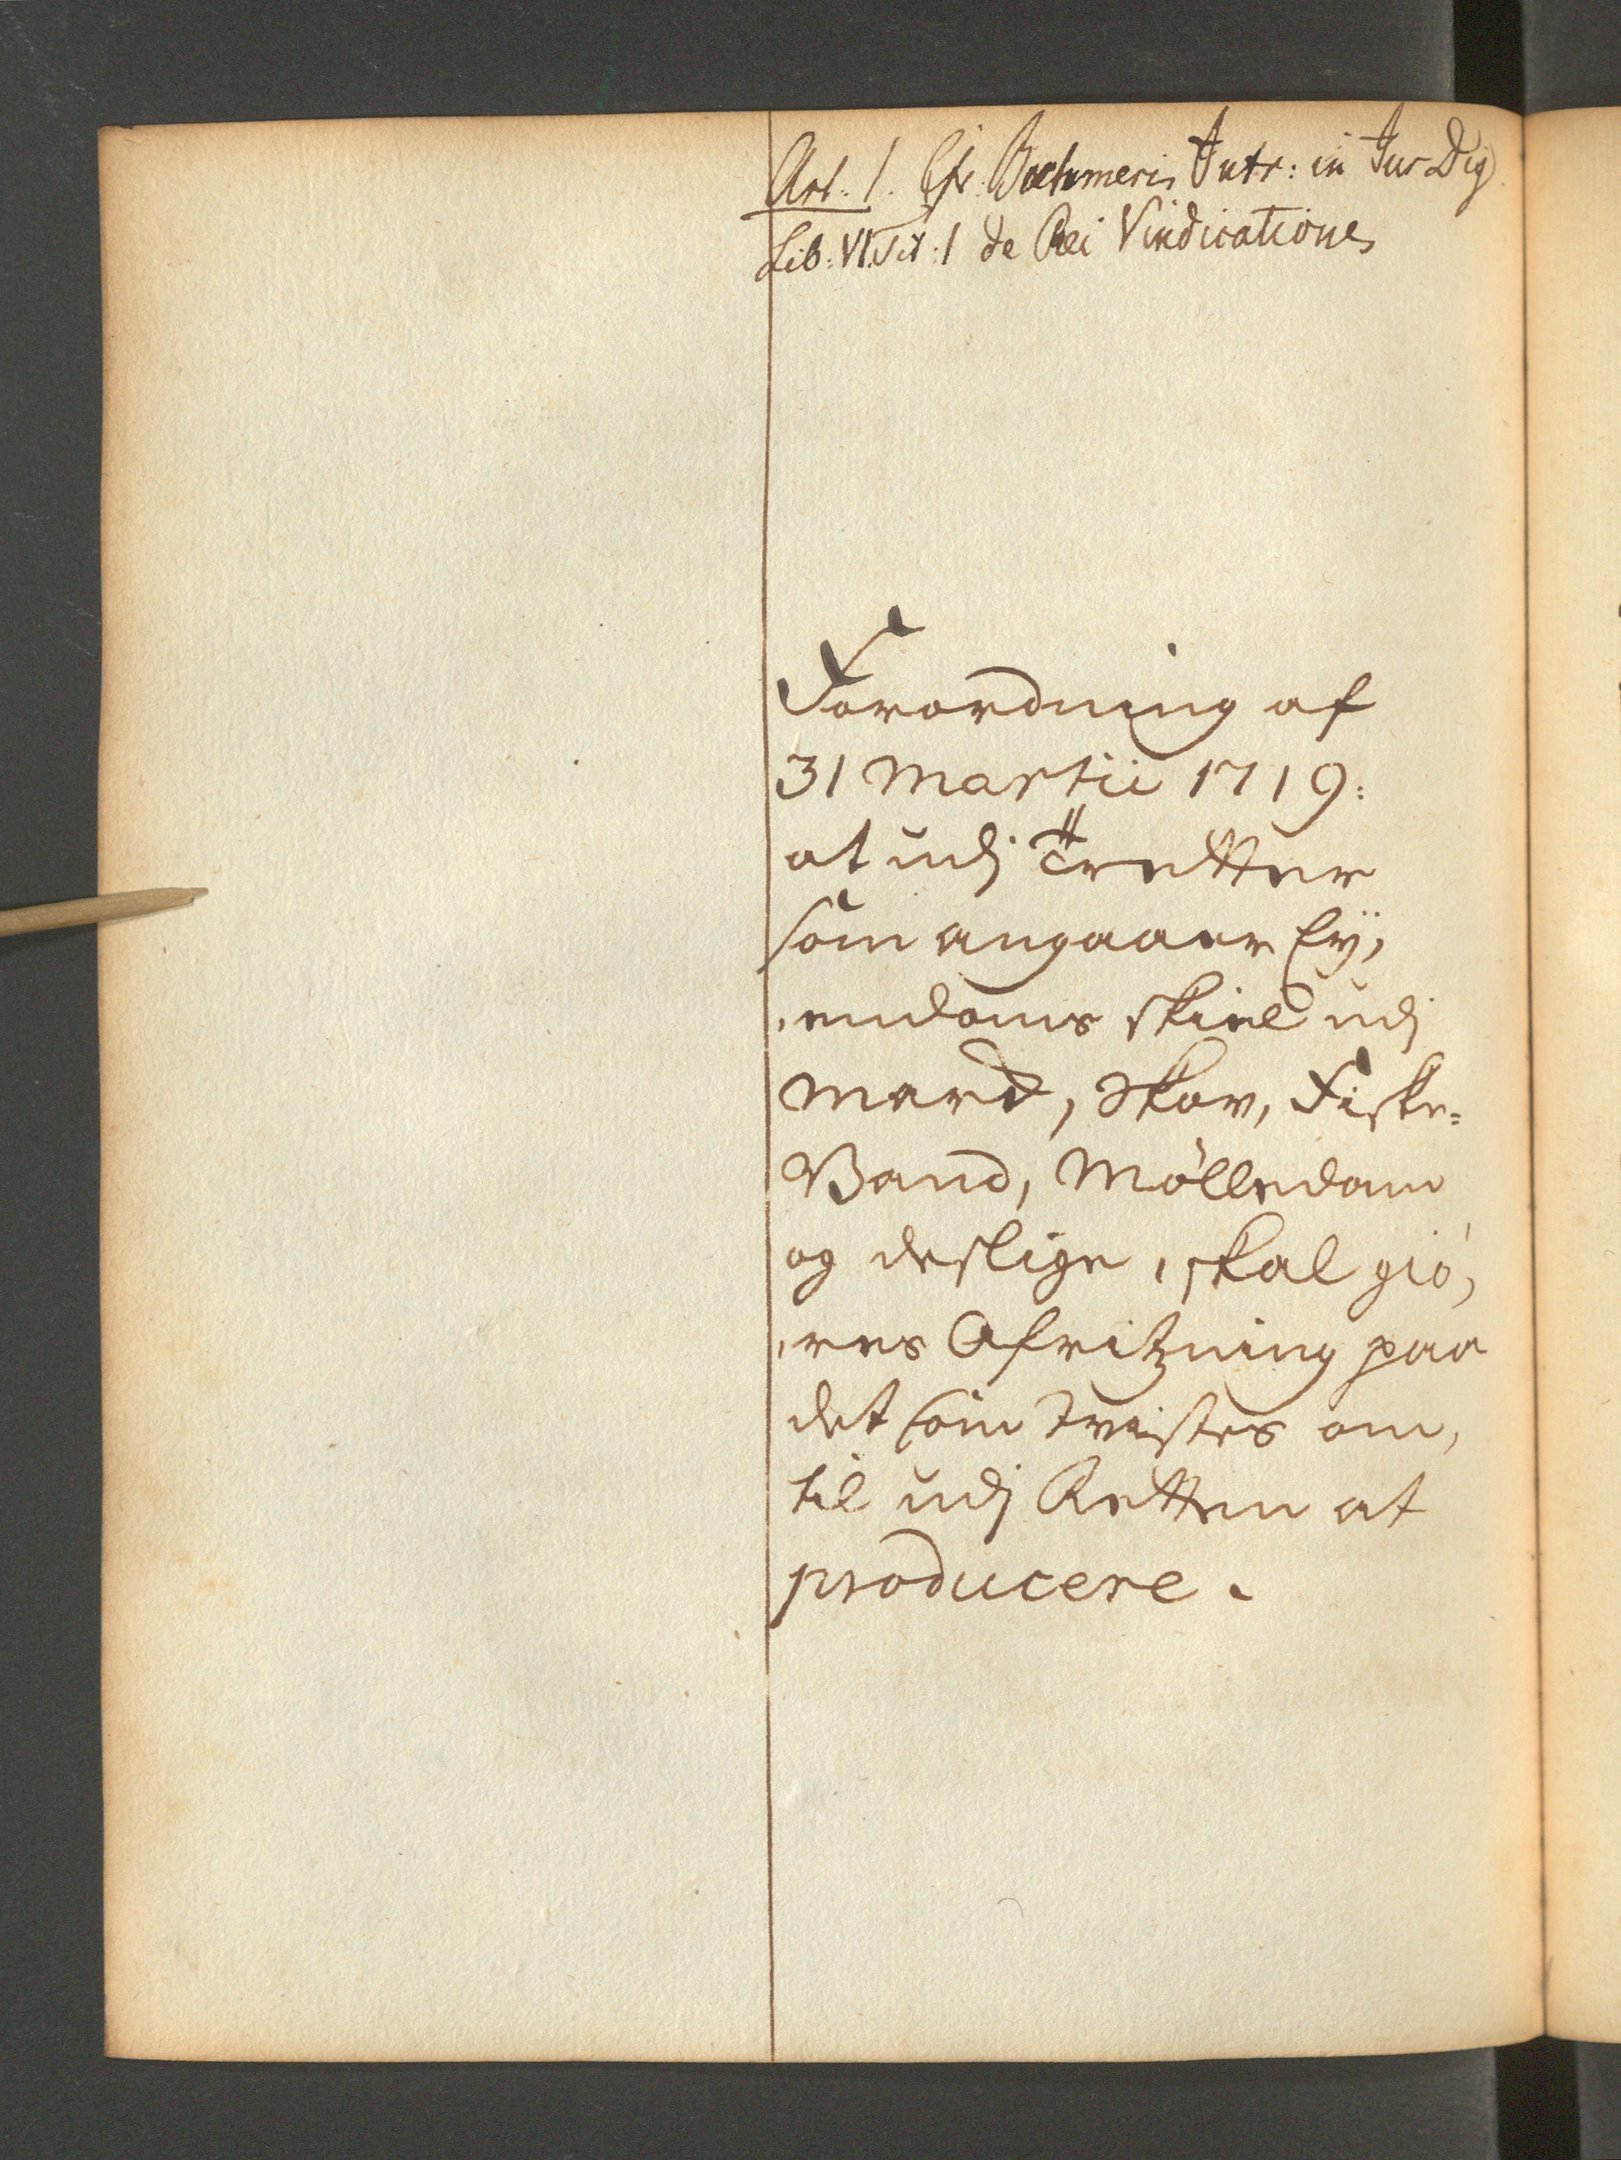 Art: 1. Cfr. Boehmeri Intr: in Jus Dig.
Lib: VI. Tit: 1 de Rei Vindicatione
Forordning af
31 Martii 1719:
at udj Tretter
som angaaer Ey,
,endoms skiel udj
Marck, Skov, Fiske=
Vand, Mölledam
og deslige, skal giö,
,res Afritzning paa
det som tvistes om,
til udj Retten at
producere.